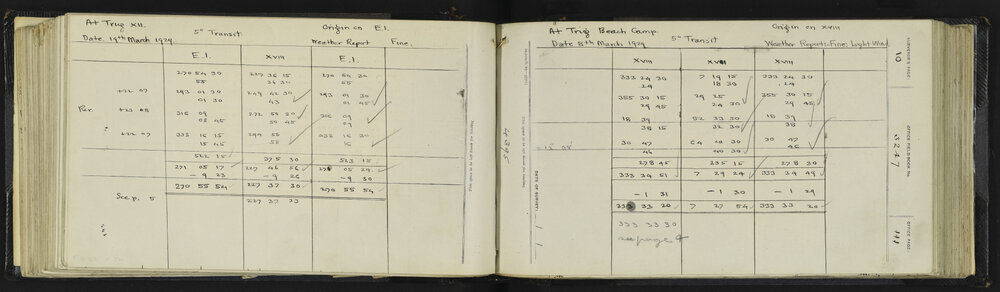 At Trug XII.
5" Transit
Origin on E.I.
Date. 19th March 1929
Weather Report Fine.
E.I. XVIII E.I.
270 54 30 227 36 15 270 54 30
55 36 30 55
+22 07 293 01 30 249 42 30 293 01 30
01 30 43 01 45
+23 08 316 09 272 50 30 316 09
08 45 50 45 09
+22 07 338 16 15 294 58 338 16 30
15 45 58 16
522 15 275 30 523 15
271 05 17 227 46 56 271 05 29
- 9 23 - 9 26 - 9 30
270 55 54 227 37 30 270 55 54
See p. 5 227 37 23
At Trug Beach Camp.
Origin on XVIII
Date 8th March 1929
5" Transit
Weather Report:- Fine: Light Wind
XVIII XVIII
333 24 30 7 19 15 333 24 30
24 18 30 24
355 30 15 29 25 355 30 15
29 45 24 30 29 45
18 39 52 33 30 18 39
38 15 32 30 38
30 47 64 40 30 30 47
46 40 30 46
278 45 235 15 278 30
333 34 51 7 29 24 333 34 49
- 1 31 - 1 30 - 1 29
333 33 20 7 27 54 333 33 20
333 33 30
see page 9
4395
DATE OF SURVEY:
SURVEYOR'S PAGE
10
OFFICE FIELDBOOK No.
3247
OFFICE PAGE: